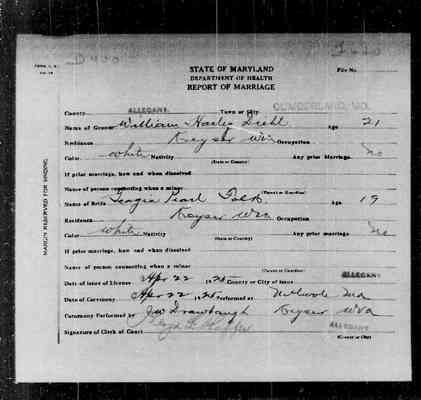 D400
J620
STATE OF MARYLAND
DEPARTMENT OF HEALTH
REPORT OF MARRIAGE
File No.
County ALLEGANY Town or City CUMBERLAND, MD.
Name of Groom William Diehl Age 21
Residence Keyser WVa Occupation
Color White Nativity Any prior marriage No
(State or Country)
If prior marriage, how and when dissolved
Name of person consenting when a minor
(Parent or Guardian)
Name of Bride Georgia Pearl Age 19
Residence Keyser WVa Occupation
Color White Nativity Any prior marriage No
(State or Country)
If prior marriage, how and when dissolved
Name of person consenting when a minor
(Parent or Guardian)
Date of issue of License Apr 22 1925 County or City of issue ALLEGANY
Date of Ceremony Apr 22 1925 Performed at Md
Ceremony Performed by JW Drawbaugh Keyser WVa
Signature of Clerk of Court ALLEGANY
(County or City)
MARGIN RESERVED FOR BINDING